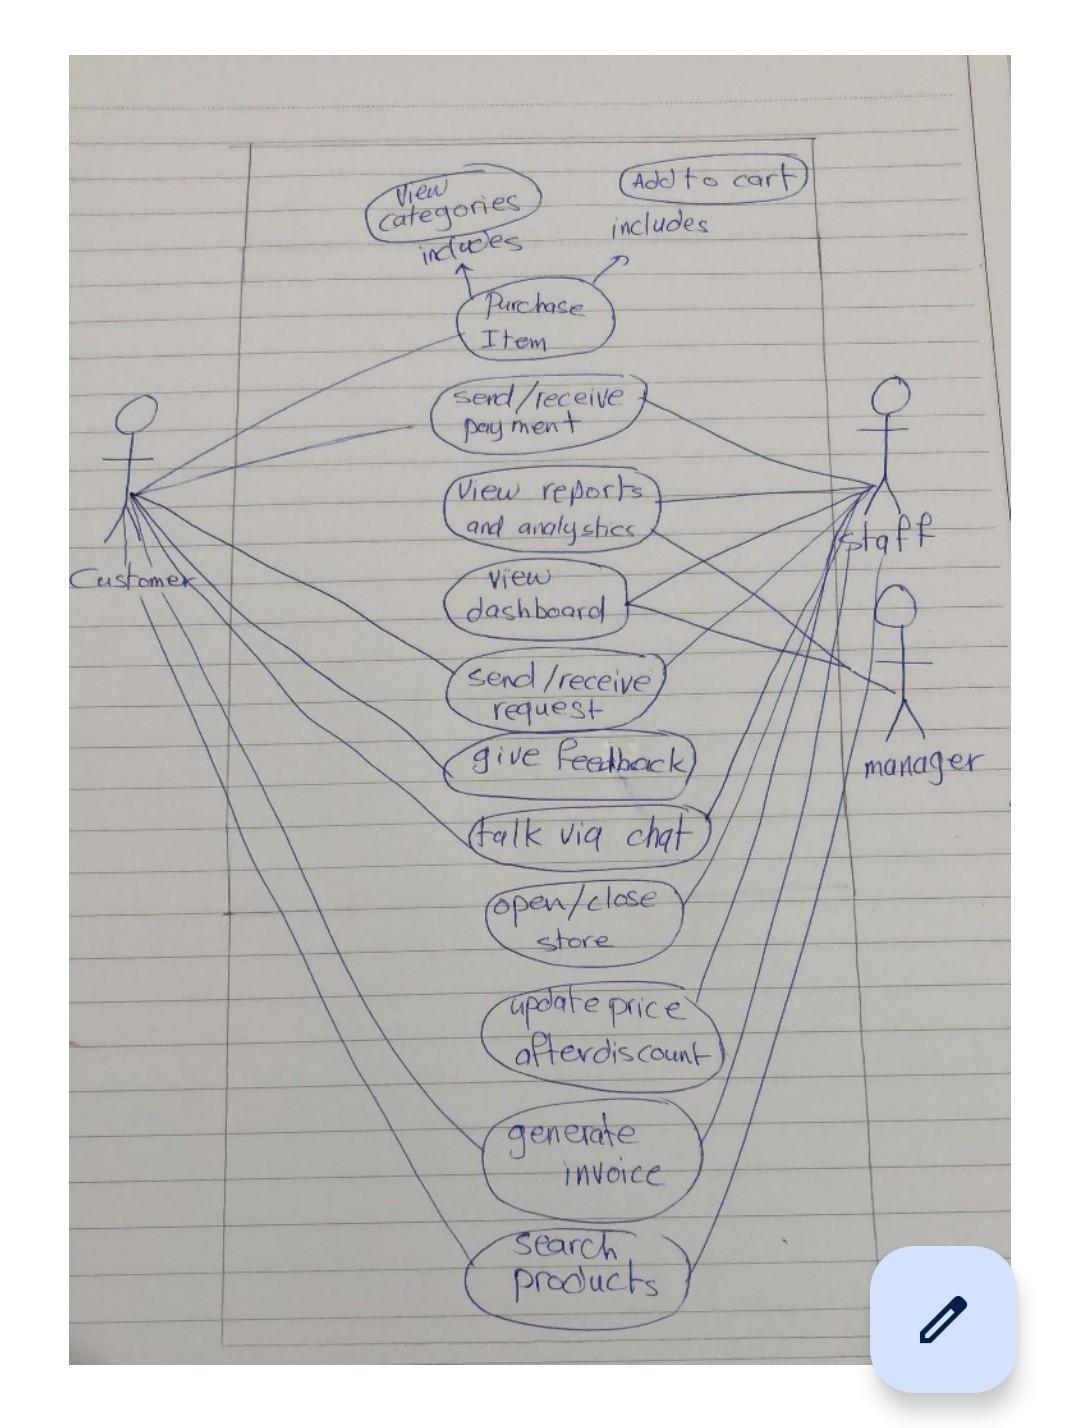 View
categories
includes
Add to cart
includes
Purchase
Item
send/receive
payment
View reports
and analystics
view
dashboard
send/receive
request
give feedback
talk via chat
open/close
store
update price
after discount
generate
invoice
search
products
Customer
staff
manager